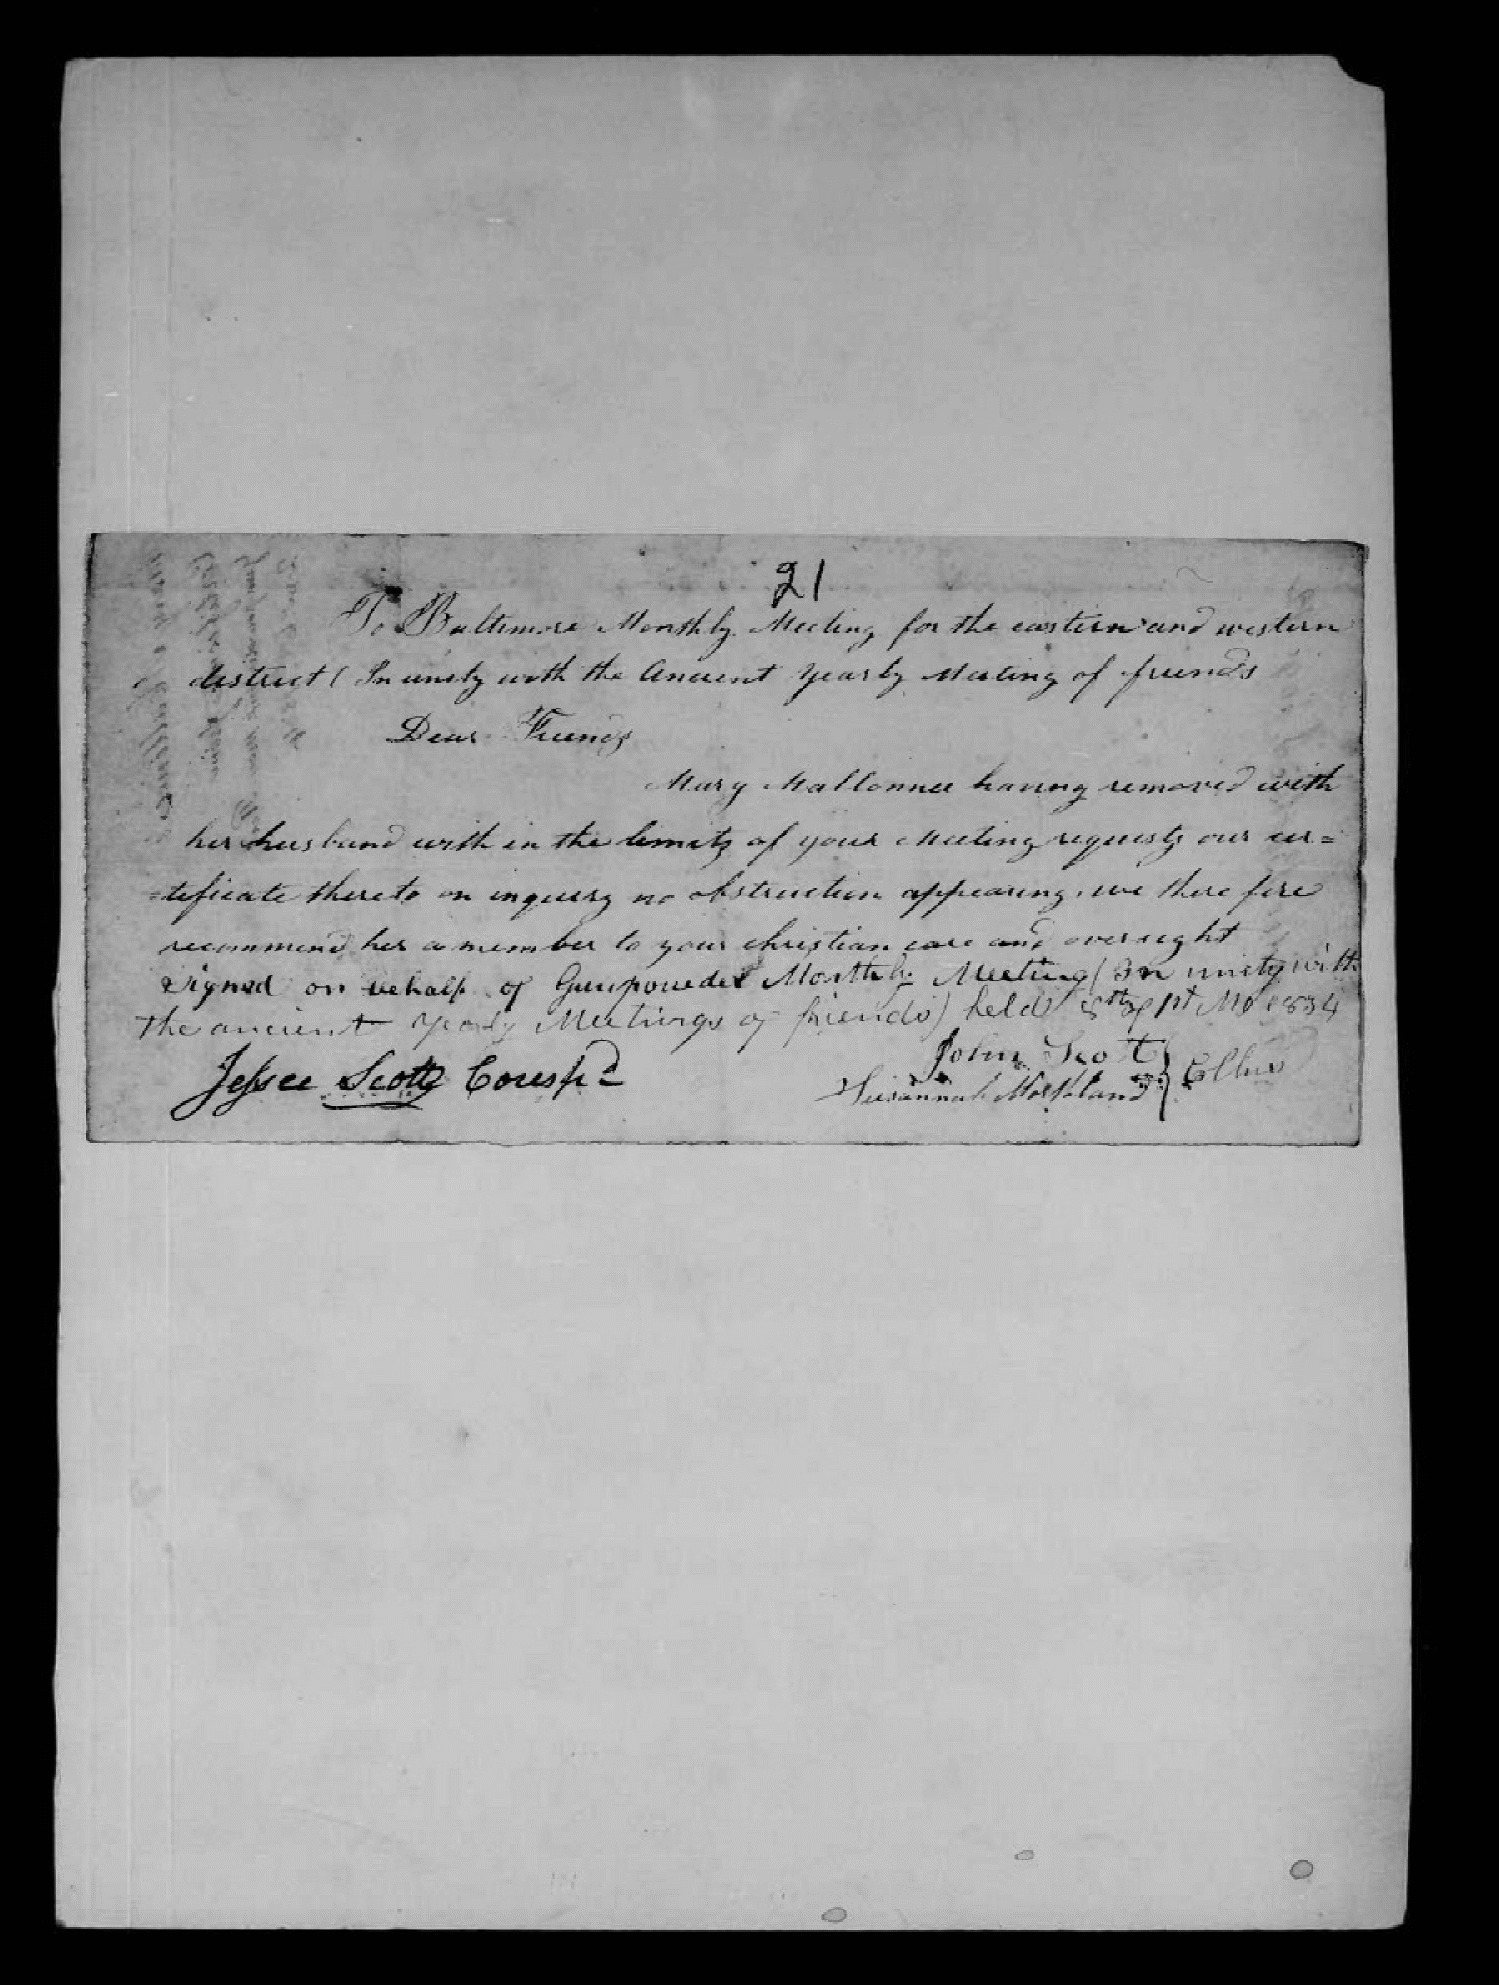 21
To Baltimore Monthly Meeting for the eastern and western
district ( In unity with the Ancient Yearly Meeting of friends
Dear Friends
Mary Mallonnee having removed with
her husband with in the limits of your Meeting requests our cer=
=tificate thereto on inquiry no obstruction appearing, we there fore
recommend her a member to your christian care and oversight
Signed on behalf of Gunpowder Monthly Meeting ( In unity with
the ancient Yearly Meetings of friends) held 8th of 1st Mo 1834
John Scott
Jessee Scott Corespd
Susannah } Clks